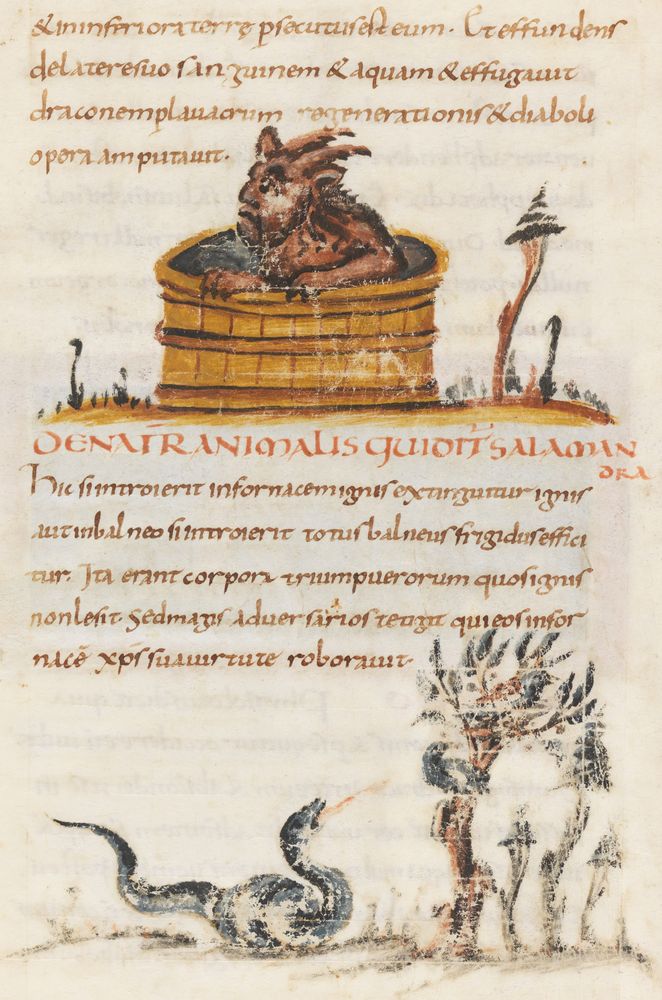 & in inferiora terrę psecutus est eum. Et effundens
de latere suo sanguinem & aquam & effugauit
draconem p lauacrum regenerationis & diaboli
opera amputauit.
DE NATR ANIMALIS QUI DIT SALAMAN
DRA
Hic si introierit in fornacem ignis extinguitur ignis
aut in balneo si introierit totus balneus frigidus effici
tur. Ita erant corpora trium puerorum quos ignis
non lesit. Sed magis aduersarios tetigit qui eos in for
nacē xps sua uirtute roborauit.